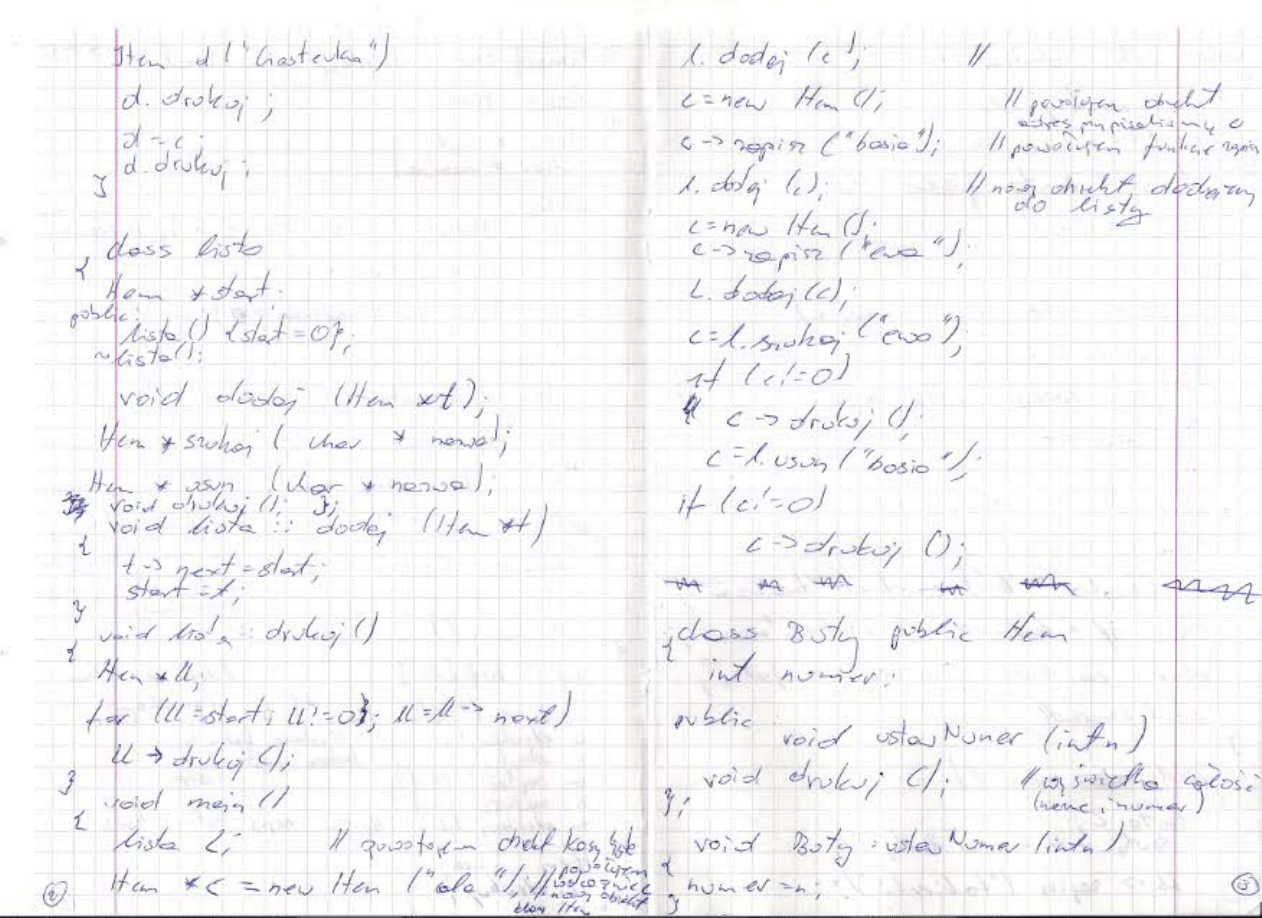 Item d ("Chasteczka")
d. drukuj ;
d = c ;
d. drukuj ;
}
class lista
{
Item *start.
public:
lista() {start = 0};
~lista();
void dodaj (Item *t);
Item * szukaj ( char * nazwa);
Item * usun (char * nazwa);
void drukuj (); };
void lista :: dodaj (Item *t)
{
t -> next = start;
start = t;
}
void lista :: drukuj ()
{
Item * ll;
for (ll = start; ll != 0}; ll = ll -> next)
ll -> drukuj ();
}
void main ()
{
lista L; //
Item *c = new Item ("ala"); //
klasy Item
2
l. dodaj (c); //
c = new Item (); // powołujem obiekt
adres
c -> zapisz ("basia"); // powołujem funkcje zapisz
l. dodaj (c); // nowy obiekt dodajemy
do listy
c = new Item ();
c -> zapisz ("ewa");
L. dodaj (c);
c = l. szukaj ("ewa");
if (c != 0)
c -> drukuj ();
c = l. usun ("basia");
if (c != 0)
c -> drukuj ();
class Buty public Item
{
int numer;
public
void ustawNumer (int n)
void drukuj (); // wyświetla całość
(name i numer)
};
void Buty : ustawNumer (int n)
{
numer = n;
}
3